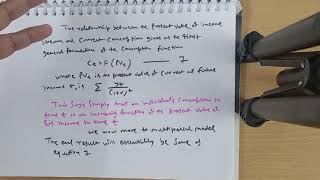 The relationship between the Present value of income
stream and Current Consumption gives us the first
general formulation of the Consumption function
Ct = f (PVt) ——— 7
where PVt is the present value of current and future
income t, is Σ yt/(1+r)^t
This says simply that an individual's consumption in
time t is an increasing function of the present value of
his income in time t
we now move to multiperiod model
The end result will essentially be same of
equation 7